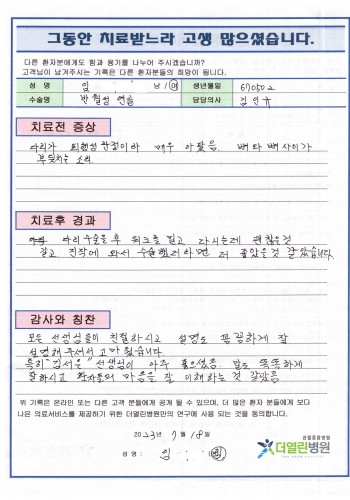 그동안 치료받느라 고생 많으셨습니다.
다른 환자분에게도 힘과 용기를 나누어 주시겠습니까?
고객님이 남겨주시는 기록은 다른 환자분들의 희망이 됩니다.
성 명 임 남 / 여 생년월일 670502
수술명 반월성 연골 담당의사
치료전 증상
다리가 퇴행성 관절이라 매우 아팠음. 뼈와 뼈사이가
부딪치는 소리
치료후 경과
다리 수술을 후 워크를 밀고 다시는데 괜찮은것
같고 진작에 와서 수술했더라면 더 좋았을것 같았습니다.
감사와 칭찬
모든 선생님들이 친절하시고 설명도 꼼꼼하게 잘
설명해주셔서 고마웠습니다
특히 선생님이 아주 좋으셨음. 말도 똑똑하게
잘하시고 환자들의 마음을 잘 이해하는 것 같았음
위 기록은 온라인 또는 다른 고객 분들에게 공개 될 수 있으며, 더 많은 환자 분들에게 보다
나은 의료서비스를 제공하기 위한 더열린병원만의 연구에 사용 되는 것을 동의합니다.
2023년 7월 18일
성 명 : 임
관절중점병원
더열린병원